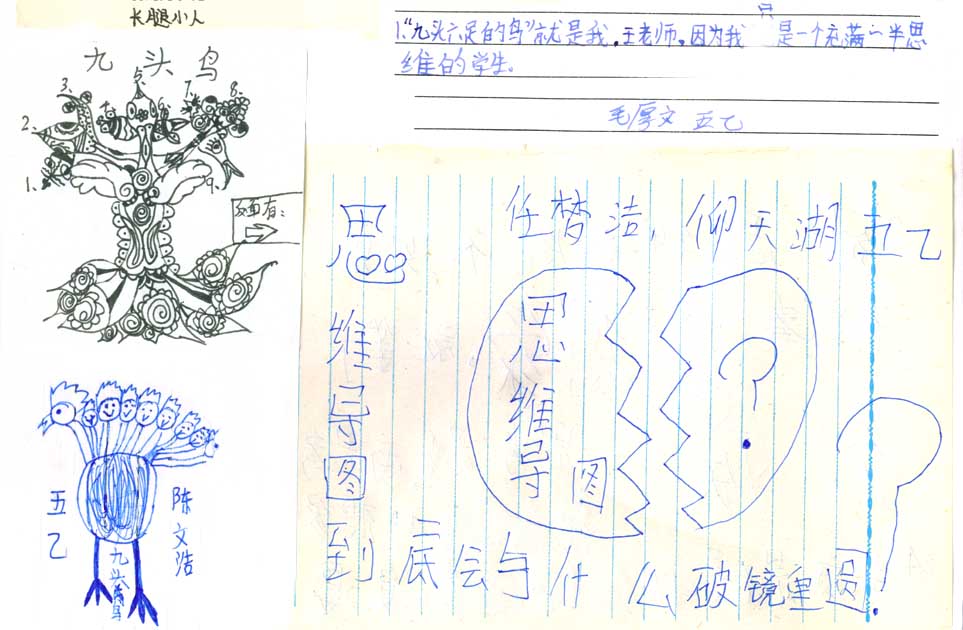 长腿小人
1.“九头六足的鸟”就是我,王老师。因为我只是一个充满一半思
维的学生。
毛厚文 五乙
九头鸟
3.
7.
8.
2.
1.
9.
任梦洁, 仰天湖 五乙
思维导图
思维导图
?
到底会与什么破镜重圆?
五乙
陈文浩
九头鸟